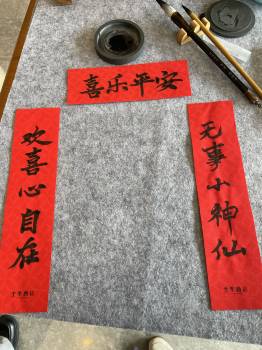 喜乐平安
欢喜心自在
无事小神仙